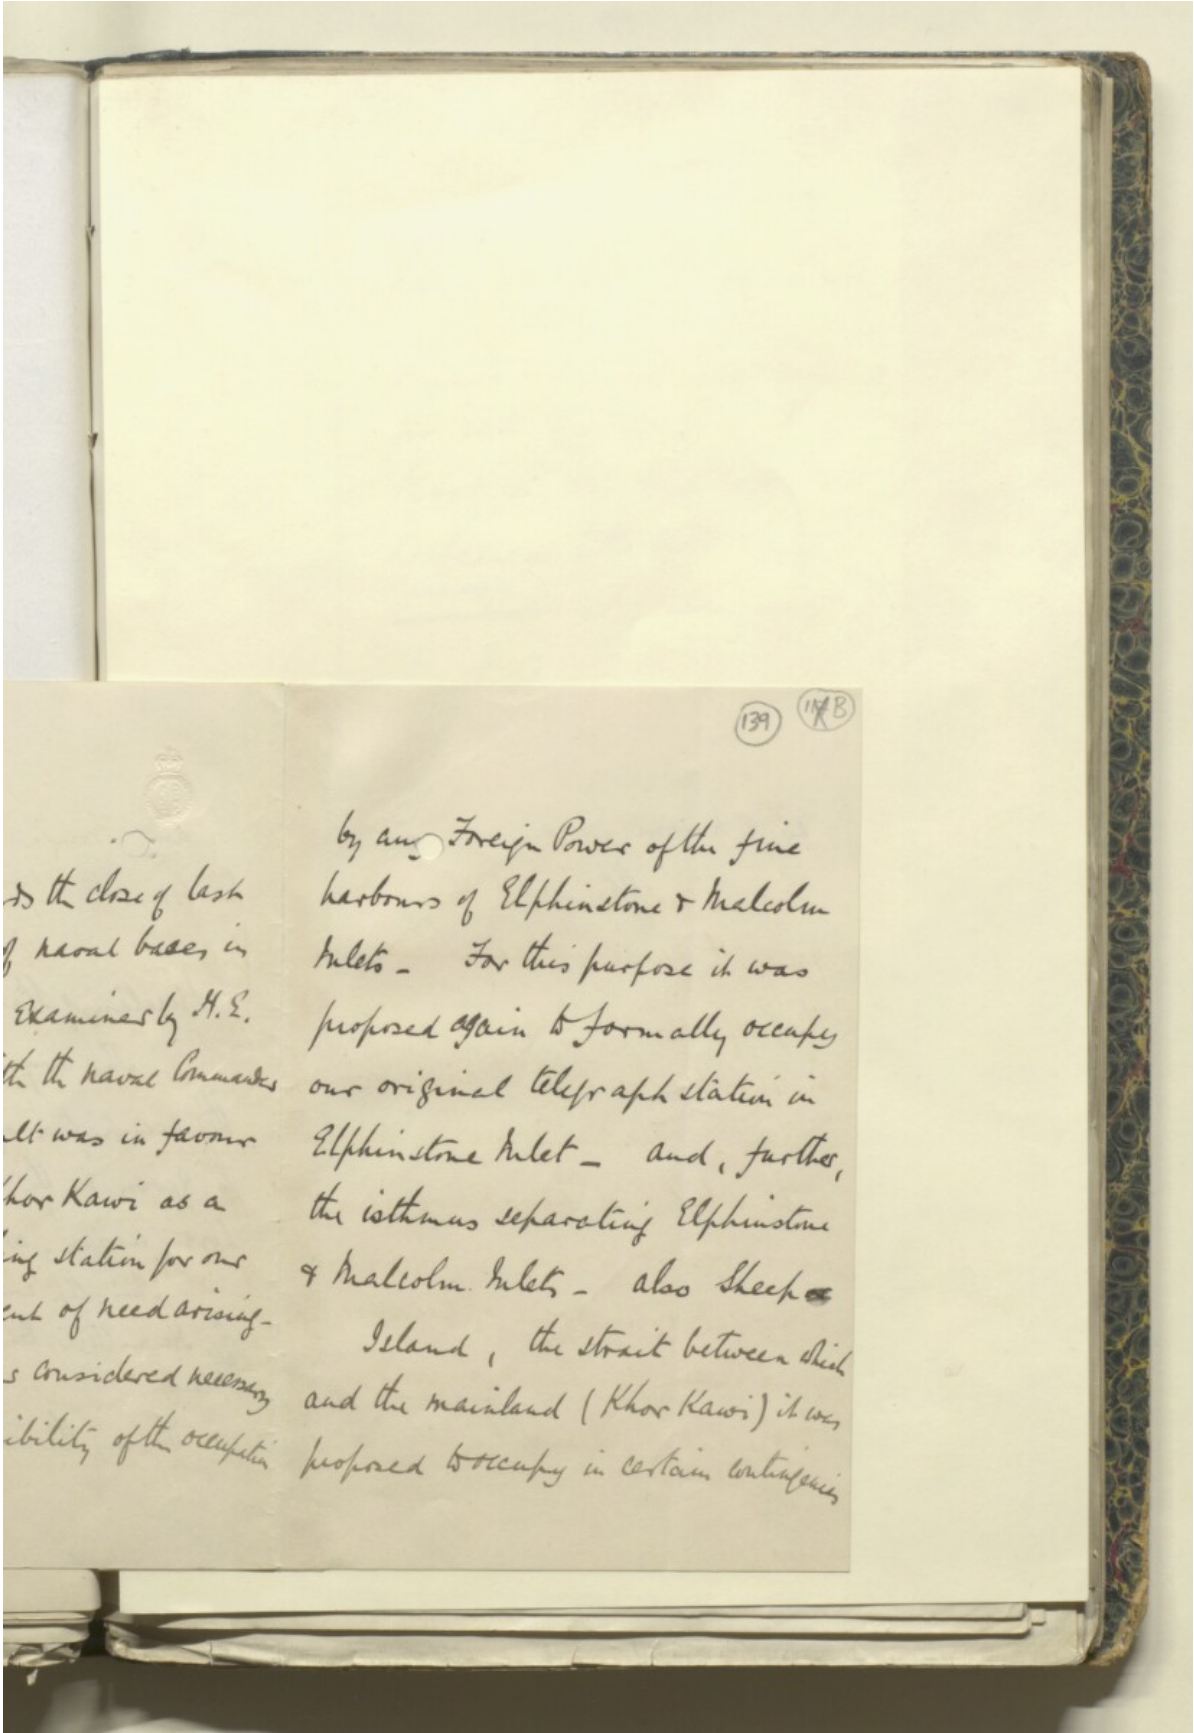 ds the close of last
of naval bases in
examined by H.E.
ith the naval Commander
ult was in favour
Khor Kawi as a
ing station for our
ent of need arising -
s considered necessary
ibility of the occupation
139
B
by any Foreign Power of the fine
harbours of Elphinstone & Malcolm
Inlets - For this purpose it was
proposed again to formally occupy
our original telegraph station in
Elphinstone Inlet - and, further,
the isthmus separating Elphinstone
& Malcolm Inlets - also Sheep
Island, the strait between which
and the mainland (Khor Kawi) it was
proposed to occupy in certain contingencies